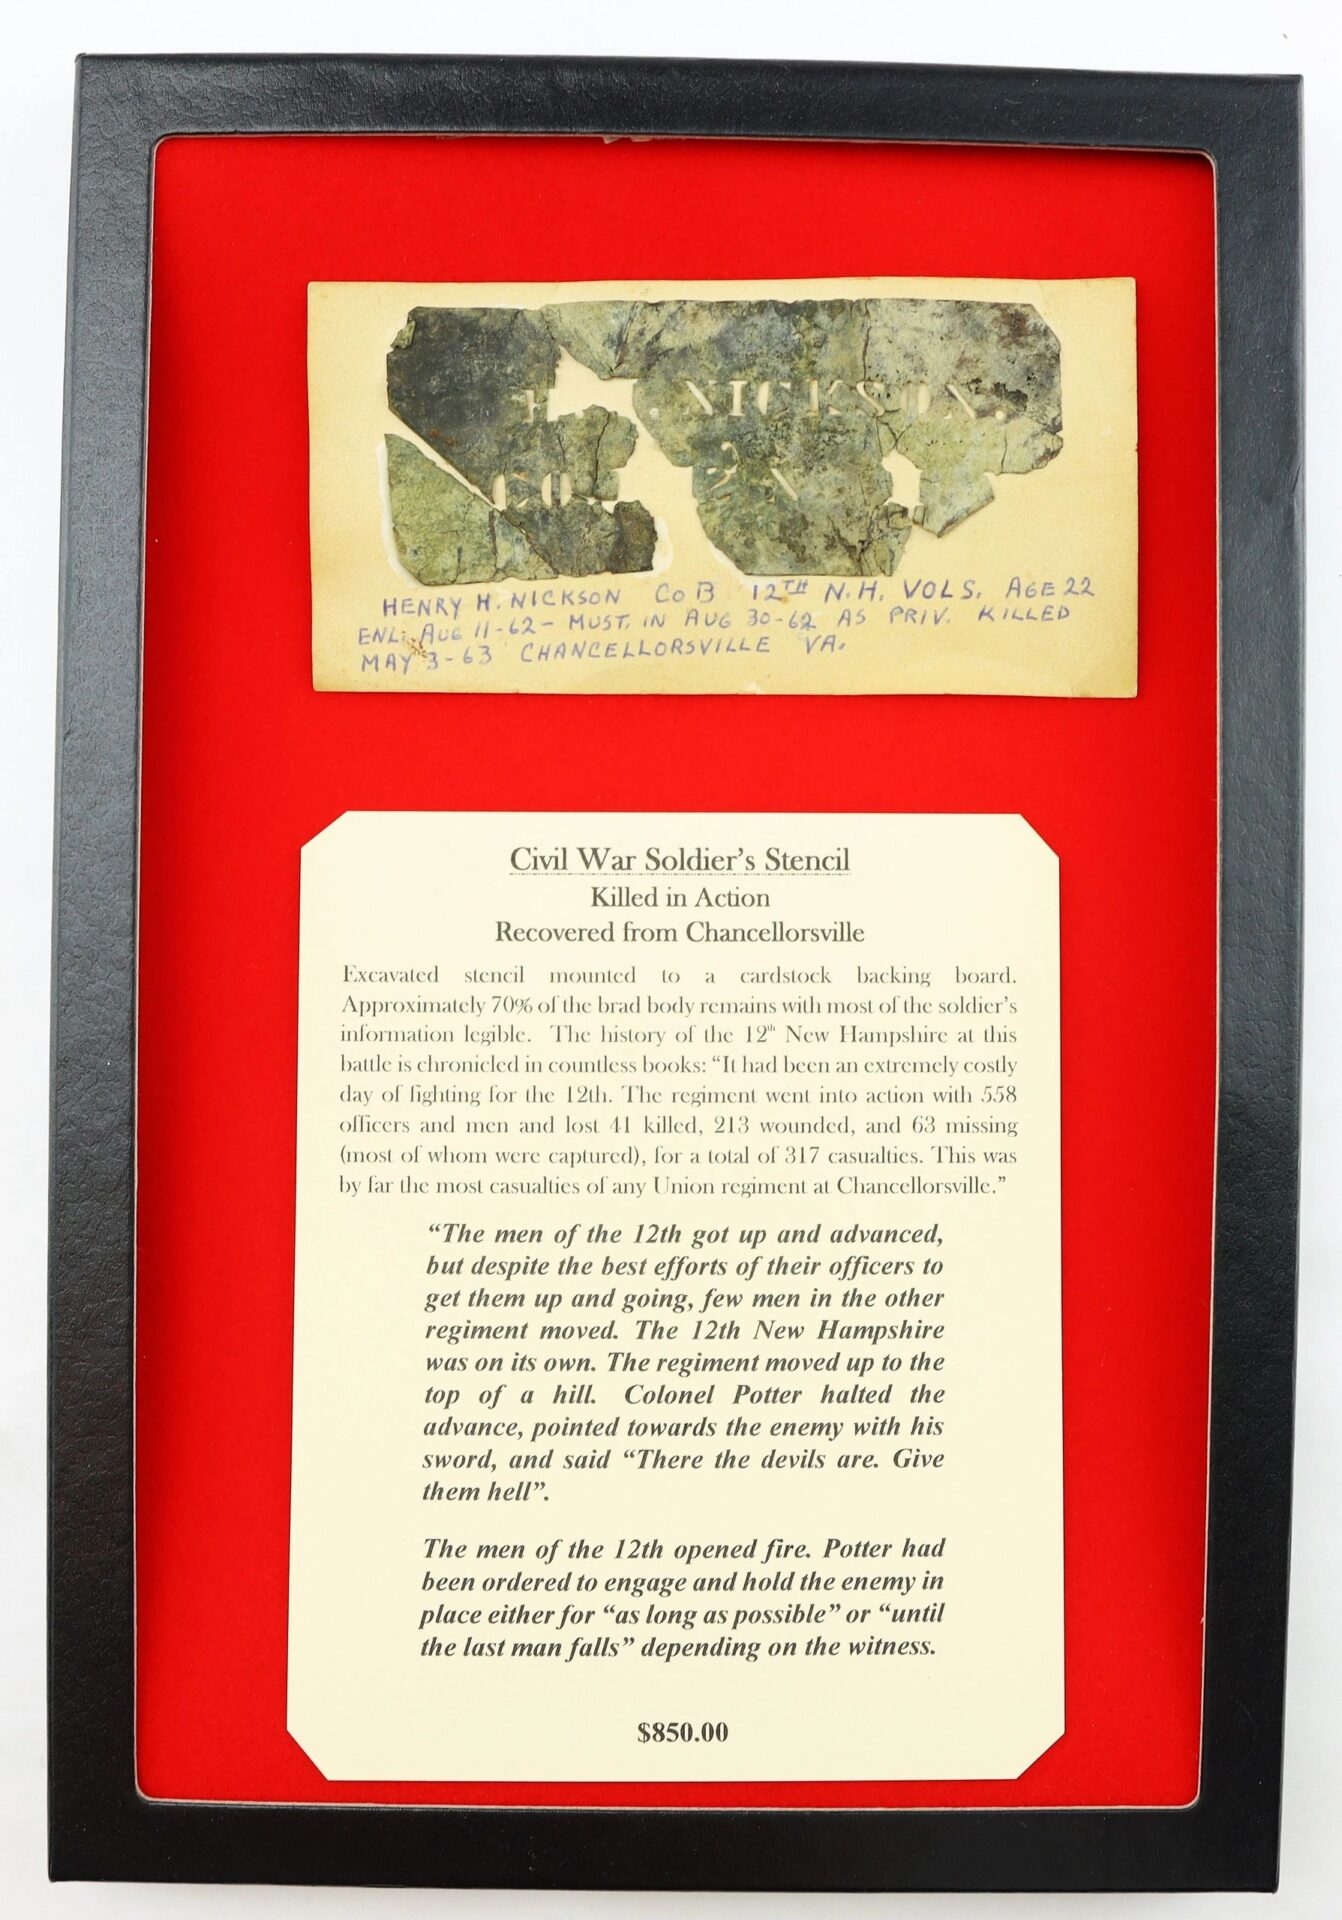 H. . NICKSON.
CO
HENRY H. NICKSON CO B 12TH N.H. VOLS. AGE 22
ENL: AUG 11-62 - MUST. IN AUG 30-62 AS PRIV. KILLED
MAY 3-63 CHANCELLORSVILLE VA.
Civil War Soldier's Stencil
Killed in Action
Recovered from Chancellorsville
Excavated stencil mounted to a cardstock backing board.
Approximately 70% of the brad body remains with most of the soldier's
information legible. The history of the 12th New Hampshire at this
battle is chronicled in countless books: “It had been an extremely costly
day of fighting for the 12th. The regiment went into action with 558
officers and men and lost 41 killed, 213 wounded, and 63 missing
(most of whom were captured), for a total of 317 casualties. This was
by far the most casualties of any Union regiment at Chancellorsville.”
“The men of the 12th got up and advanced,
but despite the best efforts of their officers to
get them up and going, few men in the other
regiment moved. The 12th New Hampshire
was on its own. The regiment moved up to the
top of a hill. Colonel Potter halted the
advance, pointed towards the enemy with his
sword, and said “There the devils are. Give
them hell”.
The men of the 12th opened fire. Potter had
been ordered to engage and hold the enemy in
place either for “as long as possible” or “until
the last man falls” depending on the witness.
$850.00